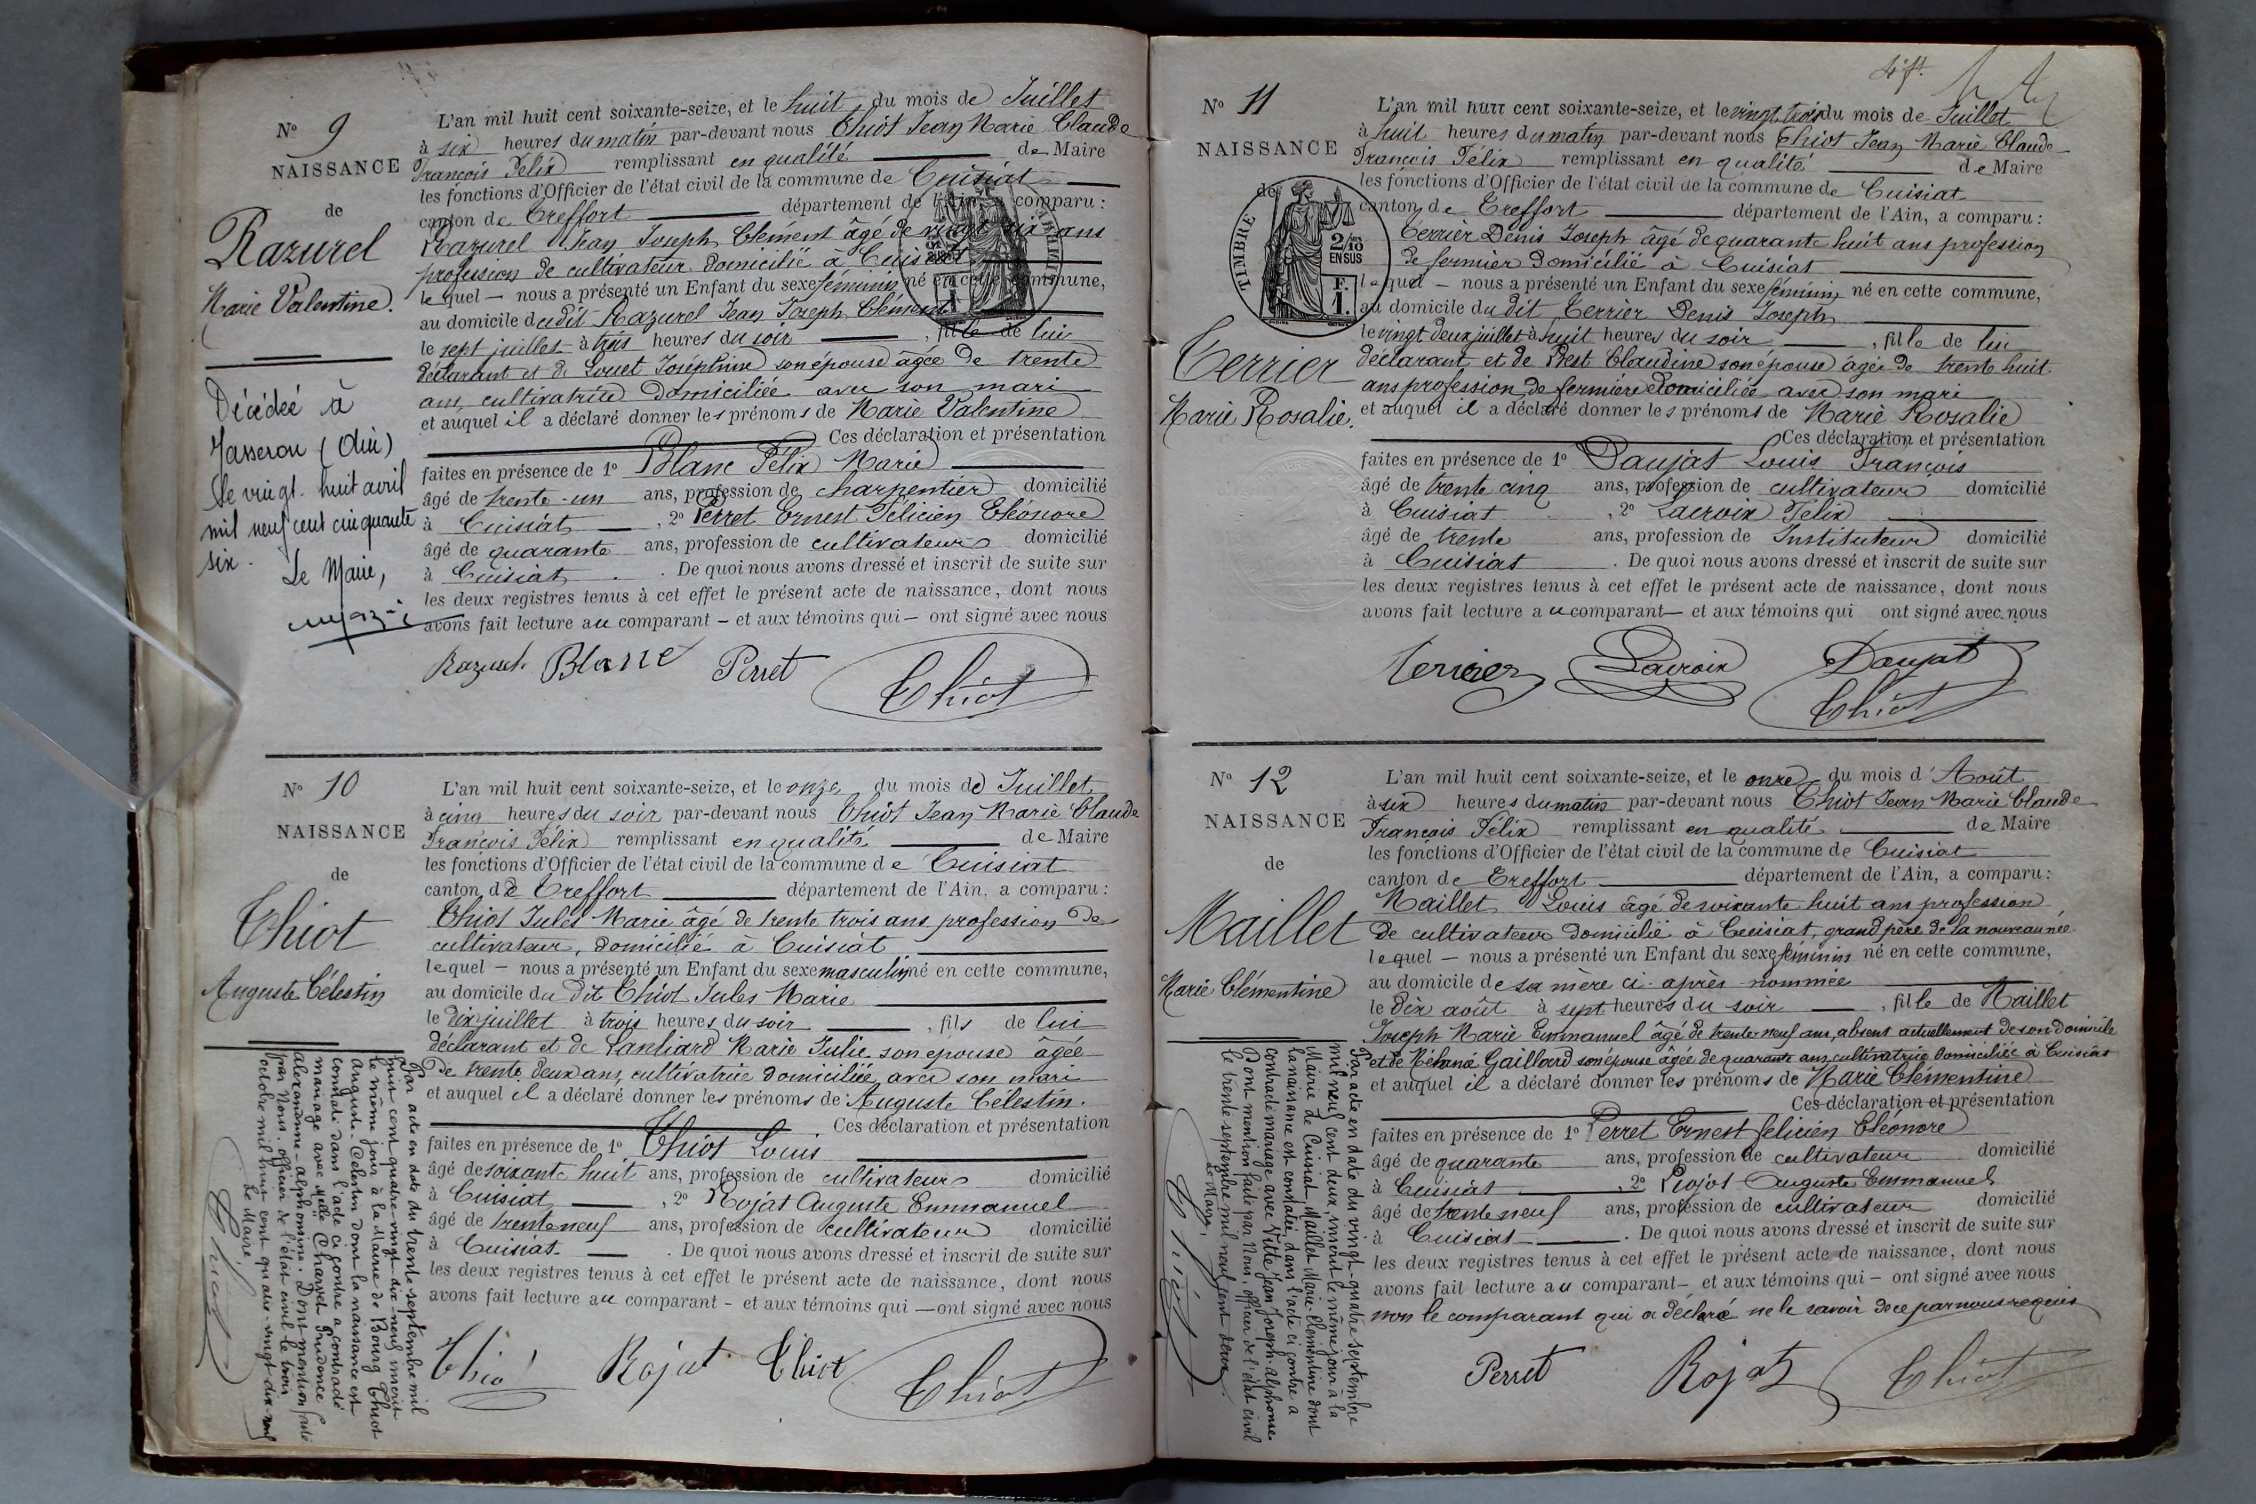 N° 9
NAISSANCE
de
Razurel
Marie Valentine.
Décédée à
Jasseron (Ain)
le vingt-huit avril
mil neuf cent cinquante
six.
Le Maire,
L'an mil huit cent soixante-seize, et le huit du mois de Juillet
à six heures du matin par-devant nous Thiot Jean Marie Claude
François Félix remplissant en qualité de Maire
les fonctions d'Officier de l'état civil de la commune de Cuisiat
canton de Treffort département de l'Ain, a comparu :
Razurel Jean Joseph Clément âgé de vingt six ans
profession de cultivateur domicilié à Cuisiat
lequel — nous a présenté un Enfant du sexe féminin né en cette commune,
au domicile du dit Razurel Jean Joseph Clément
le sept juillet à trois heures du soir , fille de lui
déclarant et de Louet Joséphine son épouse âgée de trente
ans, cultivatrice domiciliée avec son mari
et auquel il a déclaré donner les prénoms de Marie Valentine
Ces déclaration et présentation
faites en présence de 1° Blanc Félix Marie
âgé de trente-un ans, profession de charpentier domicilié
à Cuisiat , 2° Perret Ernest Félicien Eléonore
âgé de quarante ans, profession de cultivateur domicilié
à Cuisiat . De quoi nous avons dressé et inscrit de suite sur
les deux registres tenus à cet effet le présent acte de naissance, dont nous
avons fait lecture au comparant — et aux témoins qui — ont signé avec nous
Razurel Blanc Perret Thiot
N° 10
NAISSANCE
de
Thiot
Auguste Célestin
Par acte en date du trente septembre mil
huit cent quatre-vingt-dix-neuf inscrit
le même jour à la Mairie de Bourg Thiot
Auguste-Célestin dont la naissance est
constatée dans l'acte ci contre a contracté
mariage avec Melle Charvet Prudence
alexandrine-alphonsine. Dont mention faite
par Nous, officier de l'état civil le trois
octobre mil huit cent quatre-vingt-dix-neuf
Le Maire,
Thiot
L'an mil huit cent soixante-seize, et le onze du mois de Juillet
à cinq heures du soir par-devant nous Thiot Jean Marie Claude
François Félix remplissant en qualité de Maire
les fonctions d'Officier de l'état civil de la commune de Cuisiat
canton de Treffort département de l'Ain, a comparu :
Thiot Jules Marie âgé de trente trois ans profession de
cultivateur, domicilié à Cuisiat
lequel — nous a présenté un Enfant du sexe masculin né en cette commune,
au domicile du dit Thiot Jules Marie
le dix juillet à trois heures du soir , fils de lui
déclarant et de Lanliard Marie Julie son épouse âgée
de trente deux ans, cultivatrice domiciliée avec son mari
et auquel il a déclaré donner les prénoms de Auguste Célestin.
Ces déclaration et présentation
faites en présence de 1° Thiot Louis
âgé de soixante huit ans, profession de cultivateur domicilié
à Cuisiat , 2° Rojat Auguste Emmanuel
âgé de trente neuf ans, profession de cultivateur domicilié
à Cuisiat . De quoi nous avons dressé et inscrit de suite sur
les deux registres tenus à cet effet le présent acte de naissance, dont nous
avons fait lecture au comparant - et aux témoins qui — ont signé avec nous
Thiot Rojat Thiot Thiot
N° 11
NAISSANCE
de
TIMBRE
2/10
EN SUS
F.
1.
Terrier
Marie Rosalie.
L'an mil huit cent soixante-seize, et le vingt trois du mois de Juillet
à huit heures du matin par-devant nous Thiot Jean Marie Claude
François Félix remplissant en qualité de Maire
les fonctions d'Officier de l'état civil de la commune de Cuisiat
canton de Treffort département de l'Ain, a comparu :
Terrier Denis Joseph âgé de quarante huit ans profession
de fermier domicilié à Cuisiat
lequel — nous a présenté un Enfant du sexe féminin né en cette commune,
au domicile du dit Terrier Denis Joseph
le vingt deux juillet à huit heures du soir , fille de lui
déclarant et de Prest Claudine son épouse âgée de trente huit
ans profession de fermière domiciliée avec son mari
et auquel il a déclaré donner les prénoms de Marie Rosalie
Ces déclaration et présentation
faites en présence de 1° Daujat Louis François
âgé de trente cinq ans, profession de cultivateur domicilié
à Cuisiat , 2° Lacroix Félix
âgé de trente ans, profession de Instituteur domicilié
à Cuisiat . De quoi nous avons dressé et inscrit de suite sur
les deux registres tenus à cet effet le présent acte de naissance, dont nous
avons fait lecture au comparant — et aux témoins qui ont signé avec nous
Terrier Lacroix Daujat
Thiot
N° 12
NAISSANCE
de
Maillet
Marie Clémentine
Par acte en date du vingt-quatre septembre
mil neuf cent deux, inscrit le même jour à la
Mairie de Cuisiat, Maillet Marie-Clémentine dont
la naissance est constatée dans l'acte ci contre a
contracté mariage avec Vitte Jean Joseph-alphonse.
Dont mention faite par Nous, officier de l'état civil
le trente septembre mil neuf cent deux.
Le Maire,
Thiot
L'an mil huit cent soixante-seize, et le onze du mois d'Août
à six heures du matin par-devant nous Thiot Jean Marie Claude
François Félix remplissant en qualité de Maire
les fonctions d'Officier de l'état civil de la commune de Cuisiat
canton de Treffort département de l'Ain, a comparu :
Maillet Louis âgé de soixante huit ans profession
de cultivateur domicilié à Cuisiat, grand père de la nouveau née
lequel — nous a présenté un Enfant du sexe féminin né en cette commune,
au domicile de sa mère ci-après nommée
le dix août à sept heures du soir , fille de Maillet
Joseph Marie Emmanuel âgé de trente-neuf ans, absent actuellement de son domicile
et de Gaillard son épouse âgée de quarante ans, cultivatrice domiciliée à Cuisiat
et auquel il a déclaré donner les prénoms de Marie Clémentine
Ces déclaration et présentation
faites en présence de 1° Perret Ernest Félicien Eléonore
âgé de quarante ans, profession de cultivateur domicilié
à Cuisiat , 2° Rojat Auguste Emmanuel
âgé de trente neuf ans, profession de cultivateur domicilié
à Cuisiat . De quoi nous avons dressé et inscrit de suite sur
les deux registres tenus à cet effet le présent acte de naissance, dont nous
avons fait lecture au comparant — et aux témoins qui — ont signé avec nous
non le comparant qui a déclaré ne le savoir de ce par nous requis
Perret Rojat Thiot